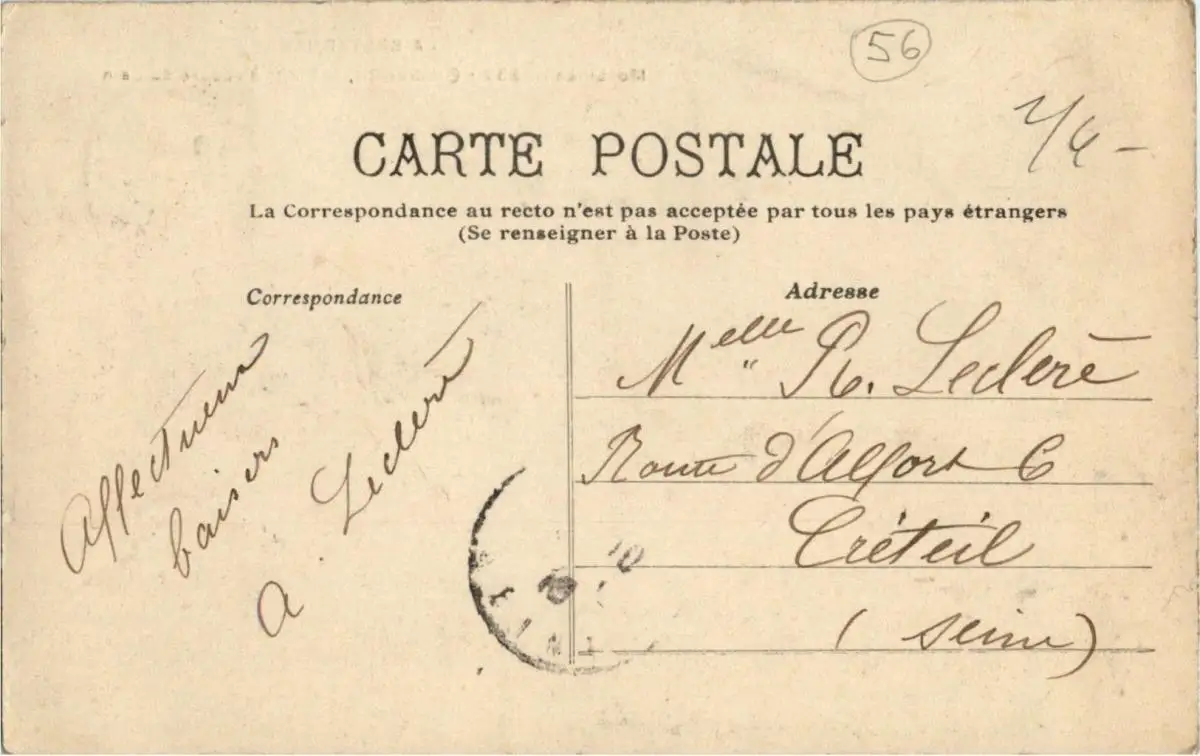 56
CARTE POSTALE
La Correspondance au recto n'est pas acceptée par tous les pays étrangers
(Se renseigner à la Poste)
Correspondance
Affectueux
baisers
A. Lecleré
Adresse
Melle R. Lecleré
Route d'Alfort 6
Créteil
(Seine)
10